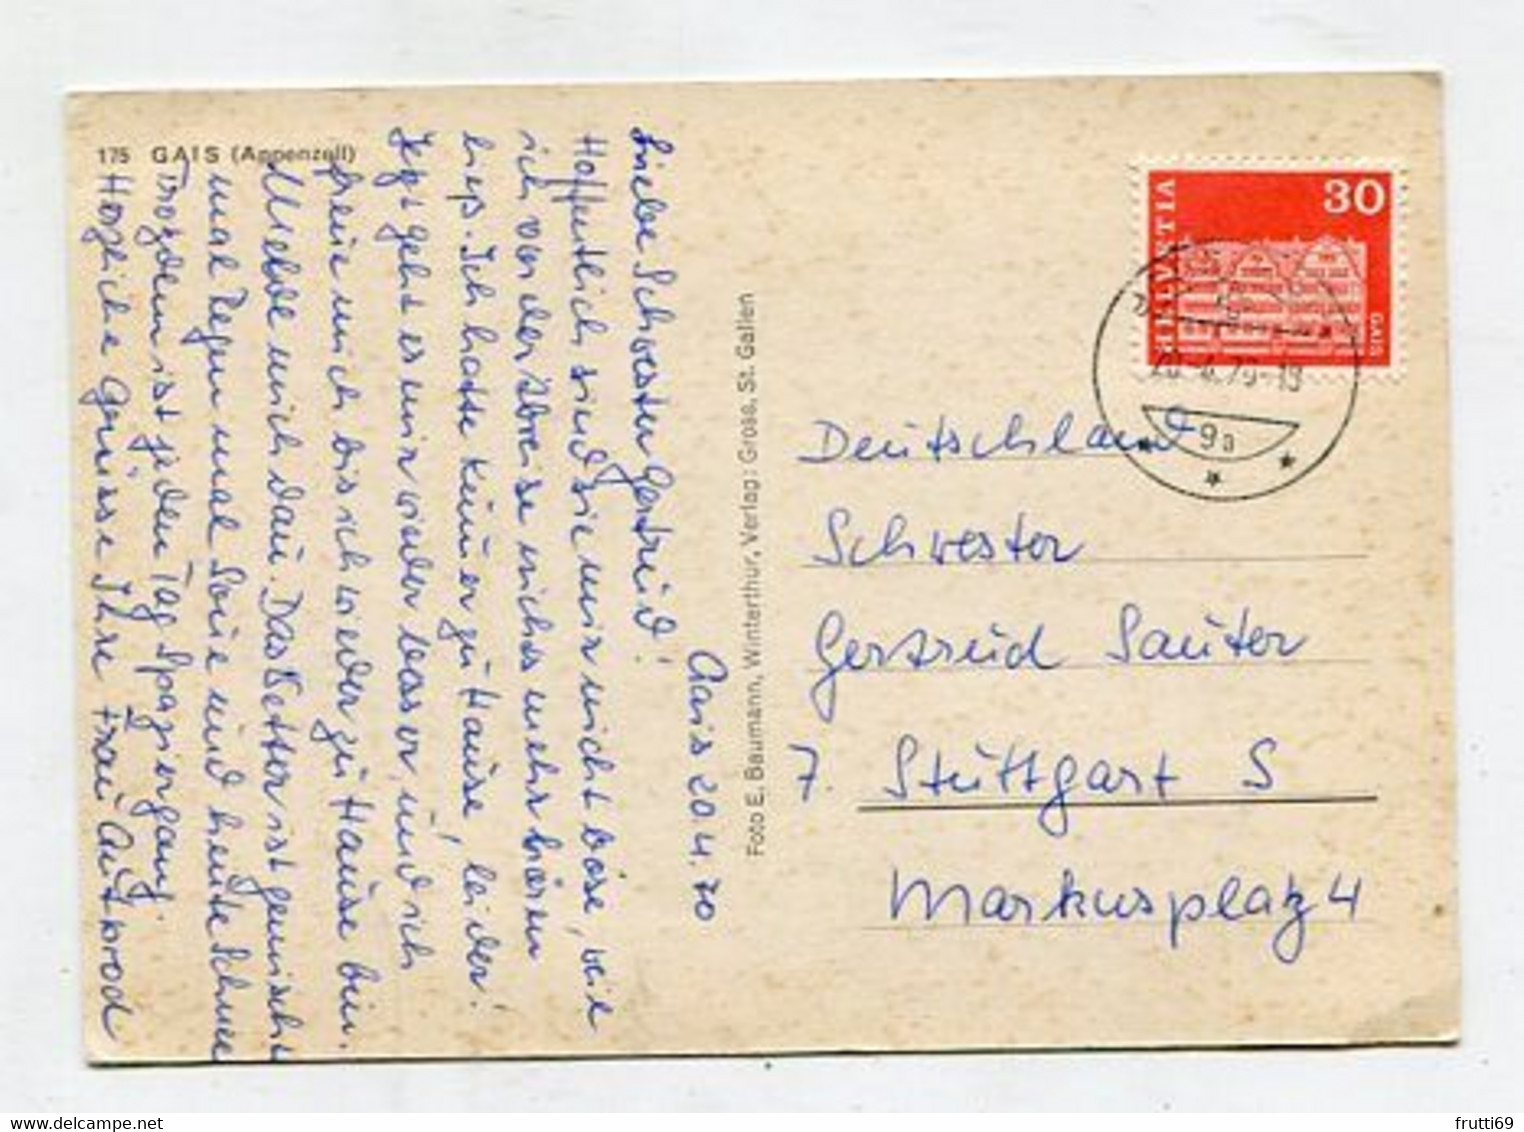 175 GAIS (Appenzell)
Gais 20.4.70
Liebe Schwester Gertrud!
Hoffentlich sind Sie mir nicht böse, weil
ich vor der Abreise nichts mehr hören
liess. Ich hatte Kummer zu Hause, leider!
Jetzt geht es mir wieder besser, und ich
freue mich bis ich wieder zu Hause bin.
Melde mich dann. Das Wetter ist gemischt
mal Regen mal Sonne und heute Schnee
Trotzdem ist jeden Tag Spaziergang.
Herzliche Grüsse Ihre Frau Gutbrod
Foto E. Baumann, Winterthur, Verlag: Gross, St. Gallen
HELVETIA
30
GAIS
20.4.70-19
9a
Deutschland
Schwester
Gertrud Sauter
7. Stuttgart S
Markusplatz 4
frutti69